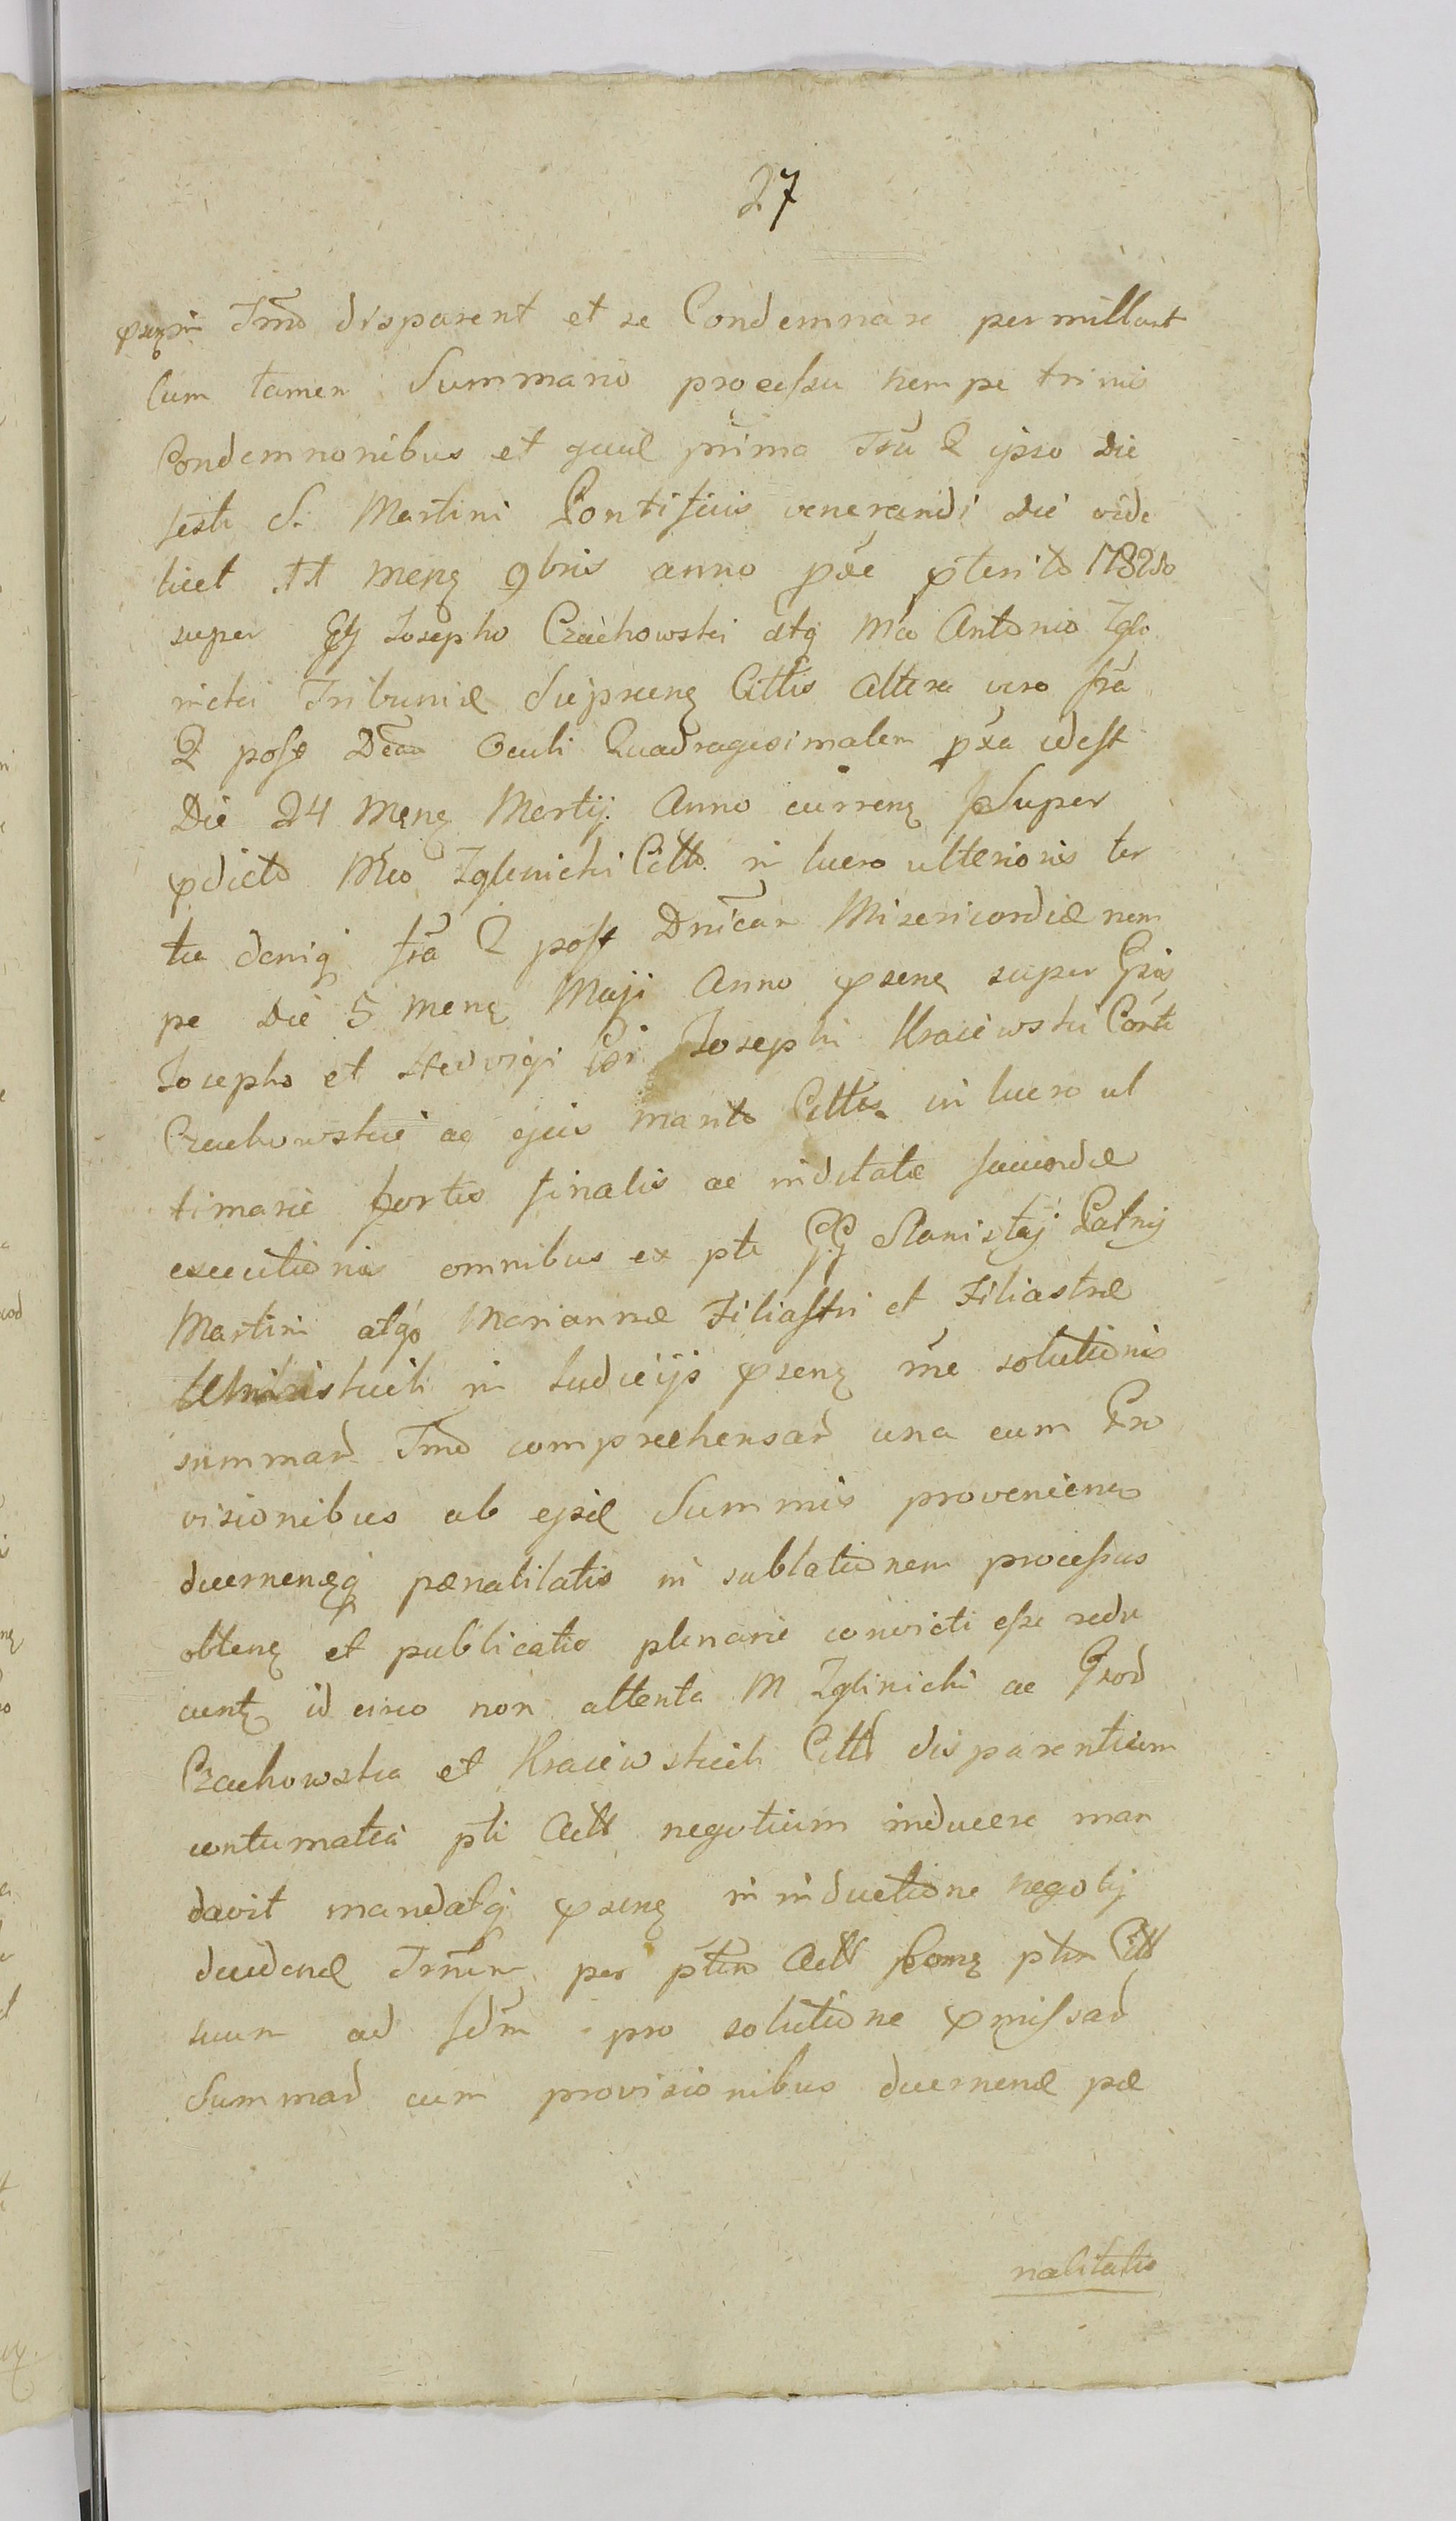 27
Tmo disparent et se Condemnare permittunt
Cum tamen Summario processu nempe trinis
Condemnonibus et quid prima Fra 2 ipso die
festi S. Martini Pontificis venerandi die vide
licet 11 Mens 9bris anno pxe pterito 1782do
super GG Josepho Czachowski atq Mco Antonio Zgli
nicki Tribunis Suprems Cittis Altera vero fra
2 post Dcam Oculi Quadragesimalem pxa idest
Die 24 Mens Martij Anno currens Super
pdicto Mco Zglinicki Citto in lucro ulterioris ter
tia deniq fra 2 post Dnicam Misericordiæ nem
pe die 5 Mens Maji Anno psens super Gsis
Josepho et Hedvigi Gsi Josephi Kraiewski Conte
Czachowskie ac ejus marito Cittis in lucro ul
timarie sortis finalis ac inditatæ
executionis omnibus ex pte GG Stanislaj Patrij
Martini atqo Mariannæ Filiastri et Filiastræ
in Judicijs psens rne solutionis
summar Tmo comprehensar una cum Pro
visionibus ab ejsd Summis proveniens
decernensq pænalitatis in sublationem processus
obtens et publicatis plenarie convicti esse redu
cunt id circo non attenta M Zglinicki ac Grod
Czachowska et Kraiewskich Citt disparentium
contumatia pti Act negotium inducere man
davit mandatq psens in inductione negotij
decidend Trmum per ptem Act ptm Citt
suum ad fdm pro solutione pmissar
Summar cum provisionibus decernend pæ
nalitatis